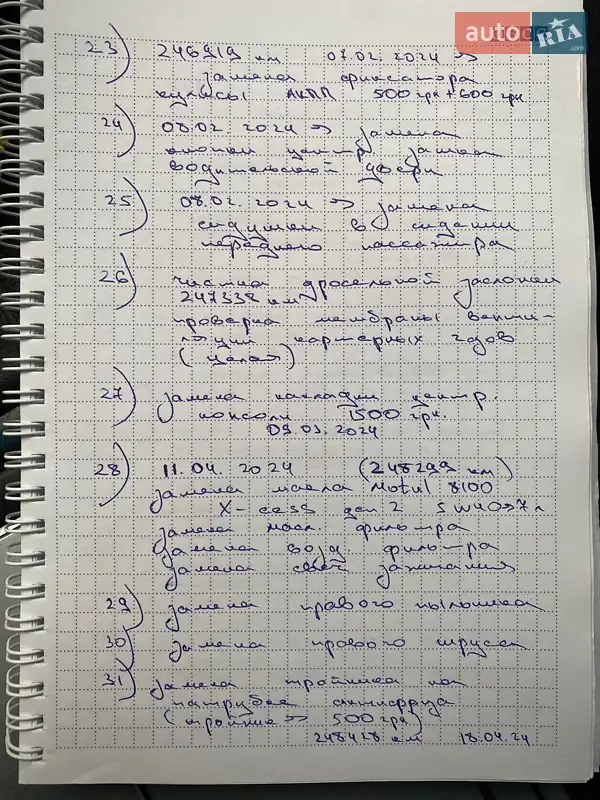 auto RIA .com
23) 246919 км 07.02.2024 →
замена фиксатора
кулисы АКПП 500 грн + 600 грн
24) 08.02.2024 → замена
кнопки центр. замка
водительской двери
25) 08.02.2024 → замена
сидушки в сидении
переднего пассажира
26) чистка дросельной заслонки
247338 км
проверка мембраны венти-
ляции картерных газов
(целая)
27) замена накладки центр.
консоли 1500 грн.
09.03.2024
28) 11.04.2024 (248299 км)
замена масла Motul 8100
X-cess gen 2 5W40 → 7л
замена масл фильтра
замена возд. фильтра
замена свеч зажигания
29) замена правого пыльника
30) замена правого шруса
31) замена тройника на
патрубке антифриза
(тройник → 500 грн)
248428 км 18.04.24